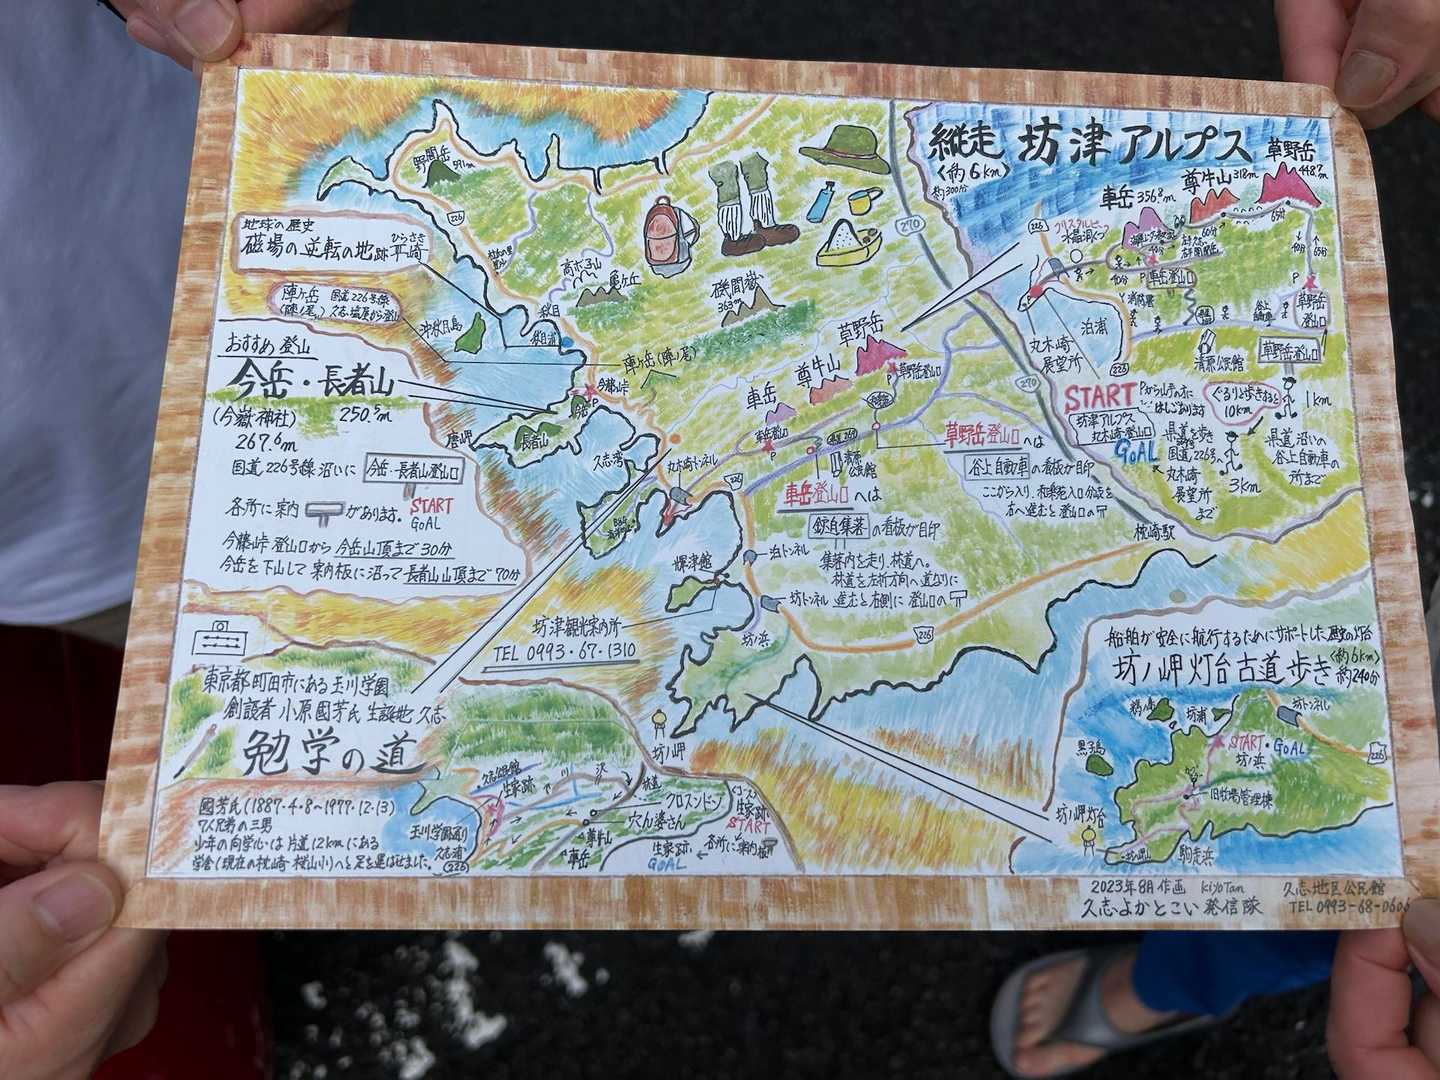 縦走 坊津アルプス
〈約6km〉
約300分
草野岳
448.7m
尊牛山 318m
車岳 356.8m
野間岳
591m
226
270
地球の歴史
磁場の逆転の地跡 平崎
ひらさき
陣ヶ岳 国道226号線
(陣ノ尾)
沖秋目島
秋目
おすすめ登山
今岳・長者山
(今嶽神社) 250.5m
267.6m
国道226号線沿いに 今岳・長者山登山口
各所に案内 があります。
START
GOAL
今藤峠登山口から今岳山頂まで30分
今岳を下山して案内板に沿って長者山山頂まで70分
亀ヶ丘
磯間嶽
363m
陣ヶ岳(陣ノ尾)
今藤峠
P
今岳
長者山
唐岬
久志湾
丸木崎トンネル
226
草野岳
尊牛山
車岳
P 草野岳登山口
車岳登山口
P
270
清原公民館
草野岳登山口へは
谷上自動車の看板が目印
車岳登山口へは
の看板が目印
集落内を走り、林道へ。
林道を左折方向へ道なりに
進むと右側に登山口の
泊トンネル
坊トンネル
輝津館
坊浜
226
枕崎駅
坊津観光案内所
TEL 0993・67・1310
坊ノ岬
水晶洞くつ
226
60分
65分
車岳登山口
P
草野岳登山口
丸木崎展望所
泊浦
消防署
清原公民館
草野岳登山口
226
START
坊津アルプス
丸木崎登山口
GOAL
ぐるりと歩きると
10km
1km
県道を歩き
国道226号
丸木崎
展望所
まで
3km
県道沿いの
谷上自動車の
所まで
東京都町田市にある玉川学園
創設者 小原國芳氏 生誕地 久志
勉学の道
國芳氏(1887・4・8~1977・12・13)
7人兄弟の三男
少年の向学心は片道12kmにある
学舎(現在の枕崎 桜山小)へと足を運ばせました。
玉川学園通り
久志浦
(226)
生家跡
川
沢
林道
クロスンドン
穴ん婆さん
尊牛山
車岳
〈コース〉
生家跡
START
生家跡
GOAL
各所に案内板
船舶が安全に航行するためにサポートした歴史の灯台
坊ノ岬灯台古道歩き
〈約6km〉
約240分
鵜ノ島
坊浦
坊トンネル
黒子島
START・GOAL
坊ノ浜
226
旧牧場管理棟
坊ノ岬灯台
坊ノ岬
駒走浜
2023年8月作画 kiyoTan
久志よかとこい発信隊
久志地区公民館
TEL 0993-68-0606